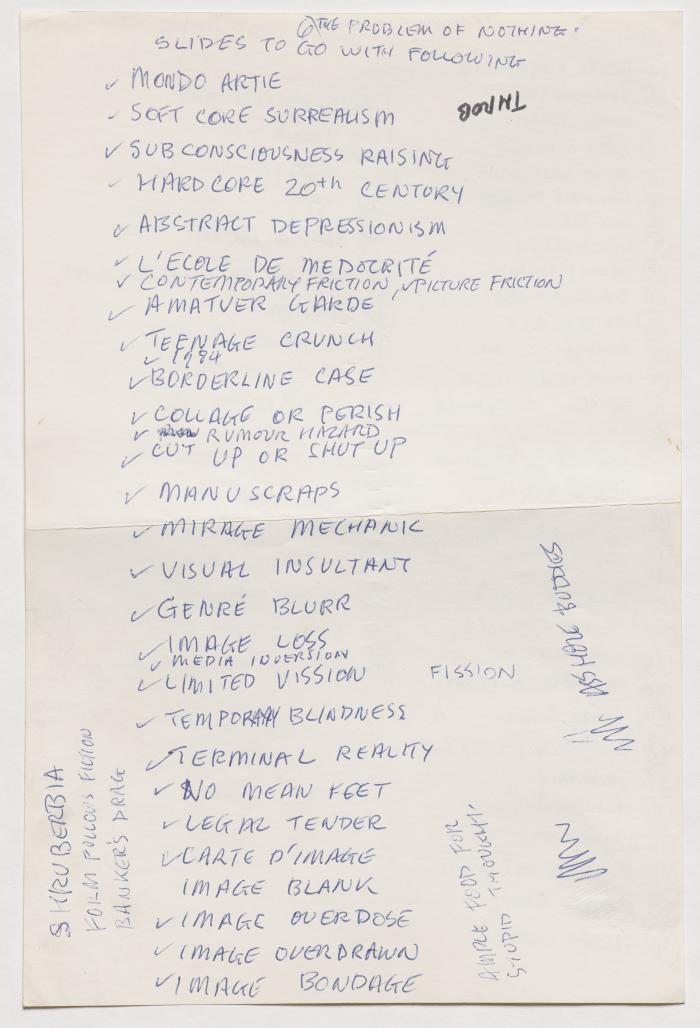 THE PROBLEM OF NOTHING.
SLIDES TO GO WITH FOLLOWING
✓ MONDO ARTIE
✓ SOFT CORE SURREALISM
✓ SUBCONSCIOUSNESS RAISING
✓ HARDCORE 20th CENTURY
✓ ABSTRACT DEPRESSIONISM
✓ L'ECOLE DE MEDOCRITÉ
✓ CONTEMPORARY FRICTION, ✓ PICTURE FRICTION
✓ AMATUER GARDE
✓ TEENAGE CRUNCH
✓ 1984
✓ BORDERLINE CASE
✓ COLLAGE OR PERISH
✓ RUMOUR HAZARD
✓ CUT UP OR SHUT UP
✓ MANUSCRAPS
✓ MIRAGE MECHANIC
✓ VISUAL INSULTANT
✓ GENRÉ BLURR
✓ IMAGE LOSS
✓ MEDIA INVERSION
✓ LIMITED VISSION FISSION
✓ TEMPORARY BLINDNESS
✓ TERMINAL REALITY
✓ NO MEAN FEET
✓ LEGAL TENDER
✓ CARTE D'IMAGE
IMAGE BLANK
✓ IMAGE OVERDOSE
✓ IMAGE OVERDRAWN
✓ IMAGE BONDAGE
SHRUBERBIA
FORM FOLLOWS FICTION
BANKER'S DRAG
AMPLE FOOD FOR
STUPID THOUGHT.
ASSHOLE BUDDIES